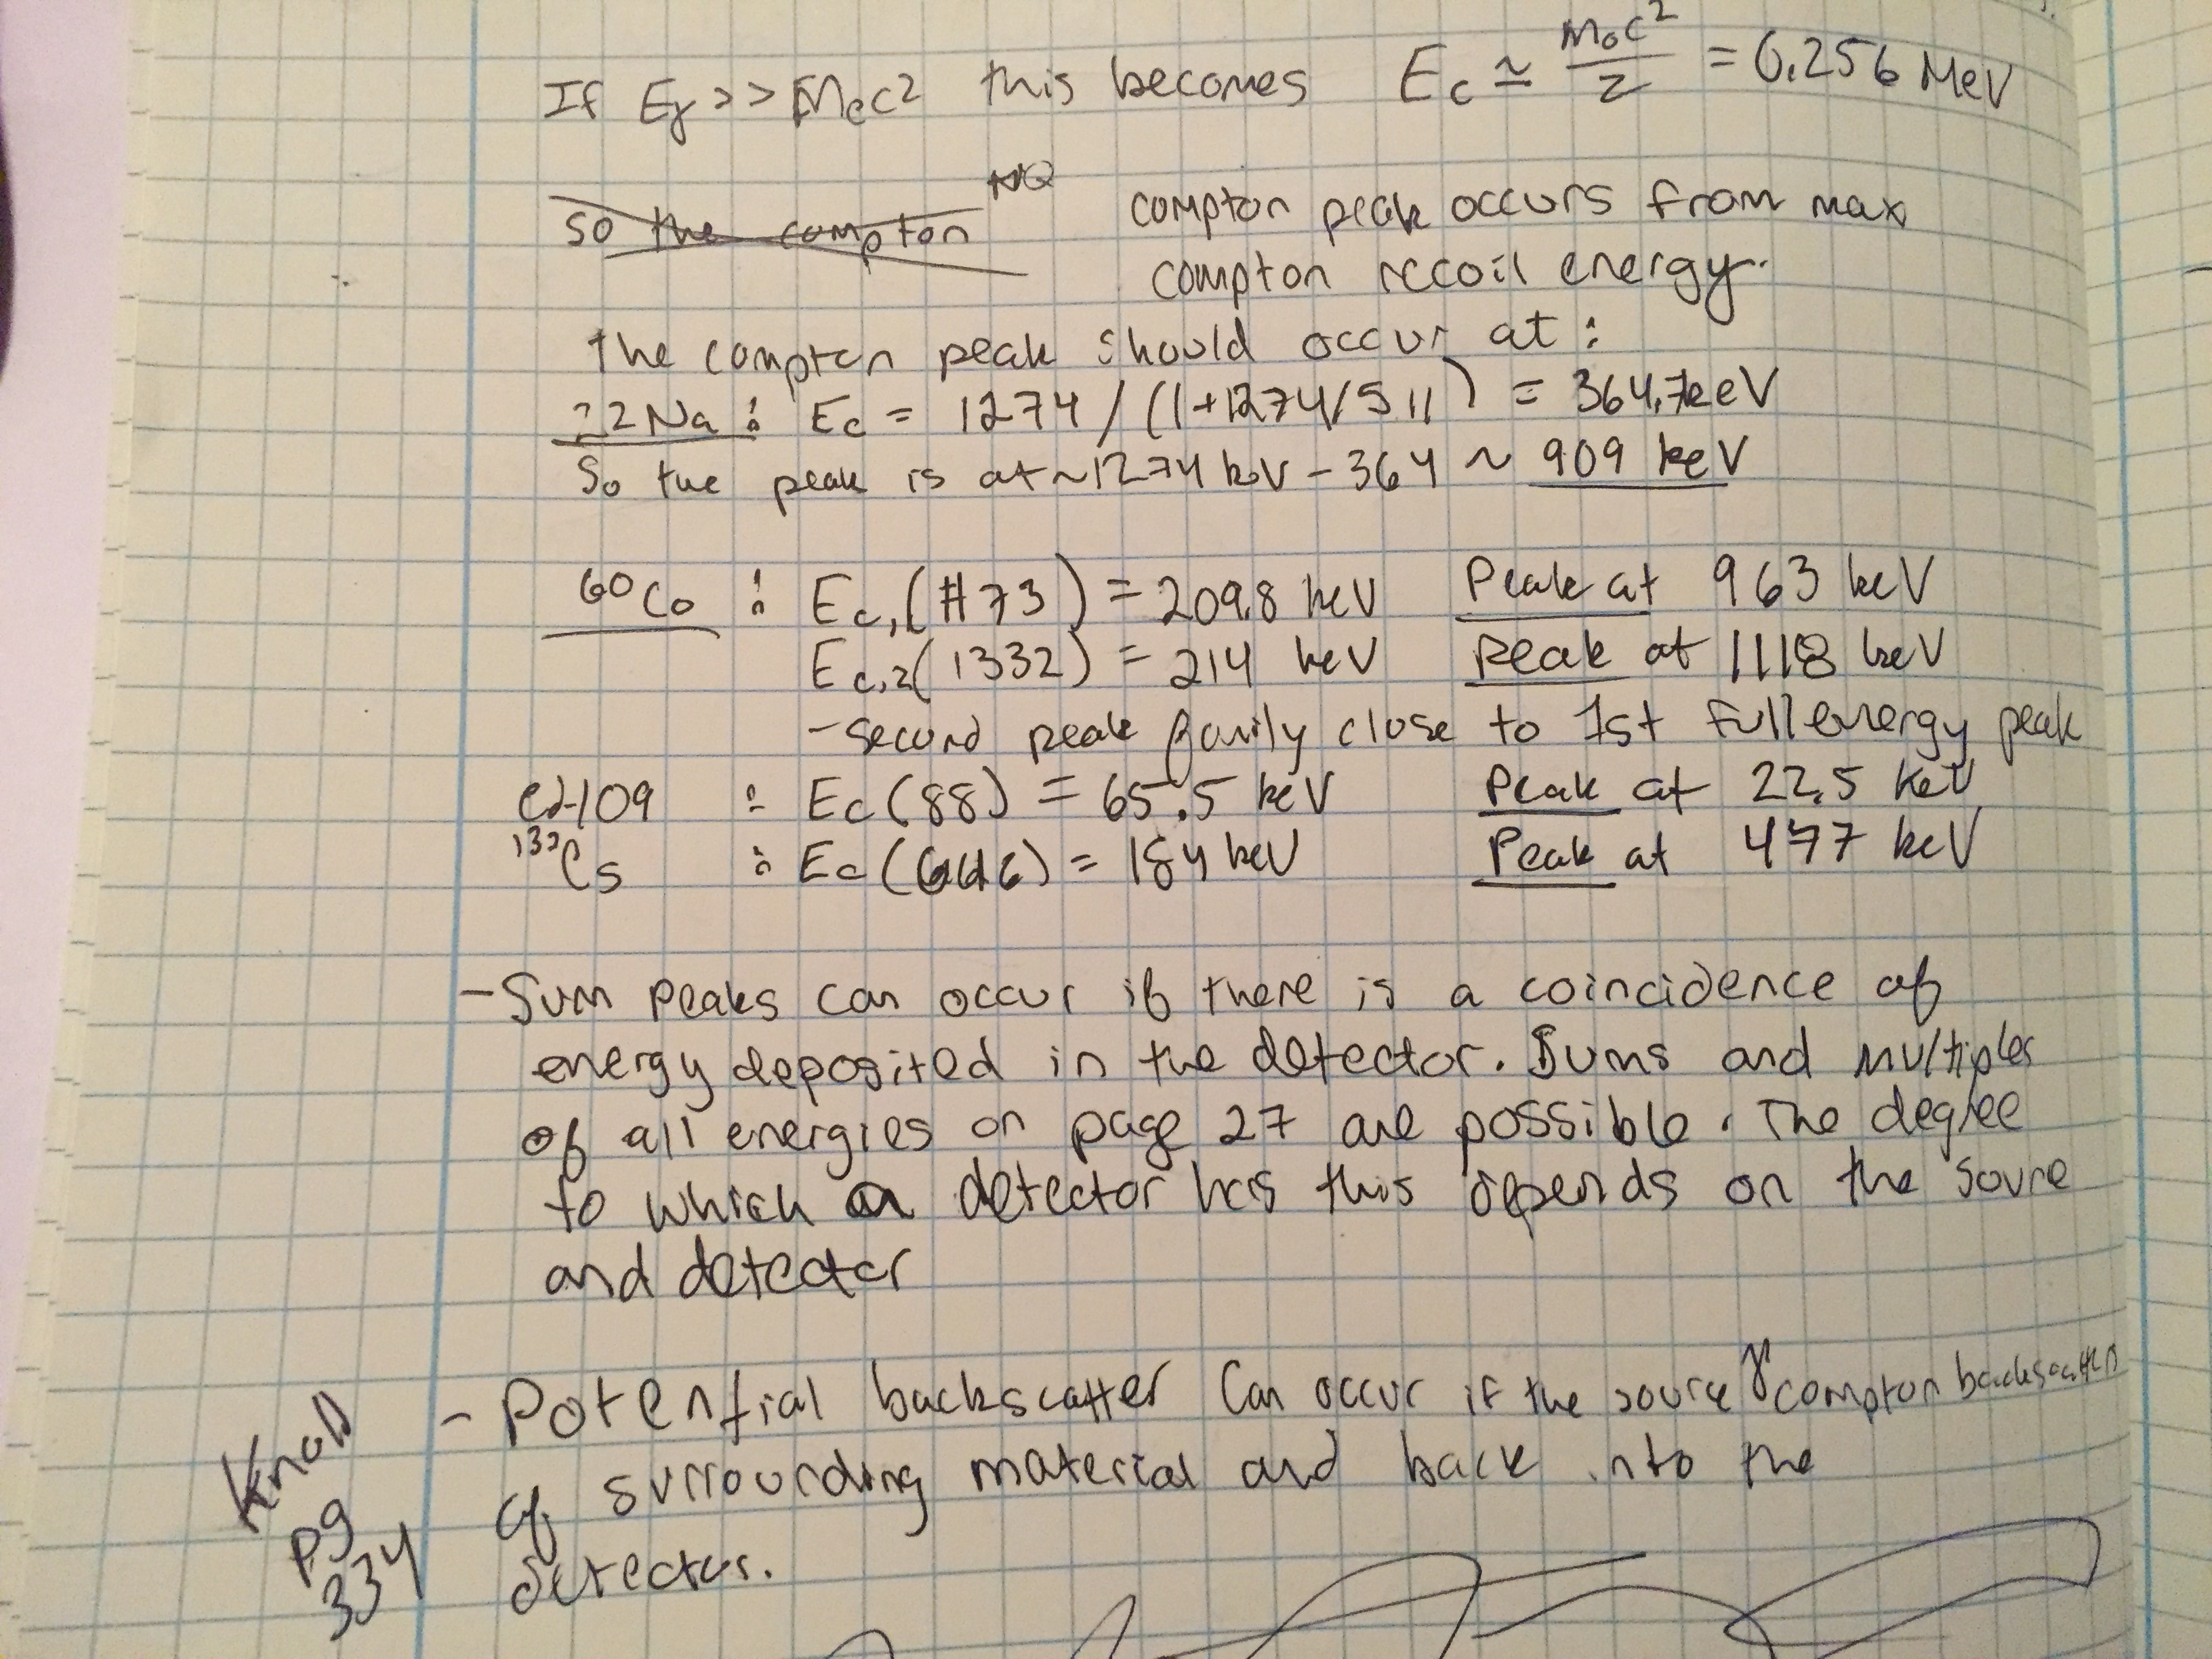 If Eγ >> Mec² this becomes Ec ≃ Moc²/2 = 0.256 MeV
so the compton NO compton peak occurs from max
compton recoil energy.
the compton peak should occur at:
22Na: Ec = 1274/(1+1274/511) = 364.7keV
So the peak is at ~1274 keV - 364 ~ 909 keV
60Co : Ec,1(1173) = 209.8 keV Peak at 963 keV
Ec,2(1332) = 214 keV peak at 1118 keV
- second peak fairly close to 1st full energy peak
Cd-109 : Ec(88) = 65.5 keV Peak at 22.5 keV
137Cs : Ec() = 184 keV Peak at 477 keV
- Sum peaks can occur if there is a coincidence of
energy deposited in the detector. Sums and multiples
of all energies on page 27 are possible. The degree
to which a detector has this depends on the soure
and detector
- Potential backscatter can occur if the source γ compton backscatters
of surrounding material and back into the
detector.
Knoll
pg
334